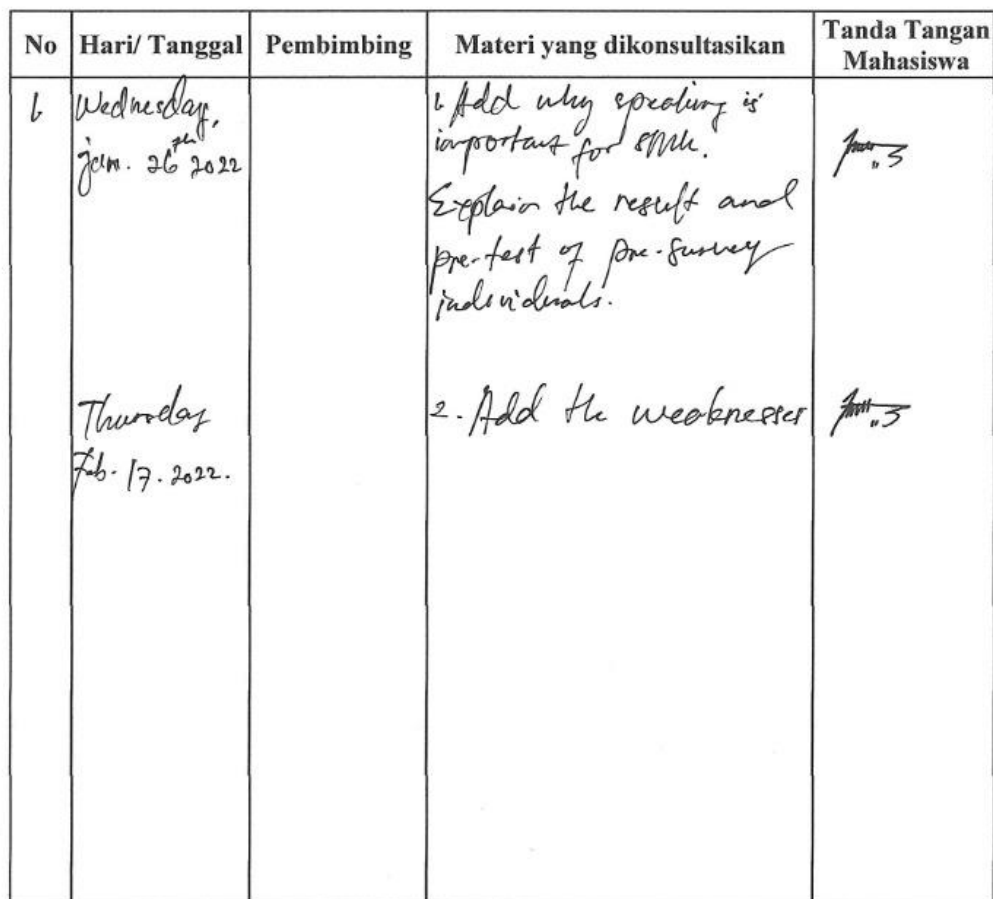 No Hari/ Tanggal Pembimbing Materi yang dikonsultasikan Tanda Tangan Mahasiswa
1. Wednesday, 1. Add why speaking is
Jan. 26th 2022 important for SMK.
Explain the result and
pre-test of pre-survey
individuals.
Thursday 2. Add the weaknesses
Feb. 17. 2022.